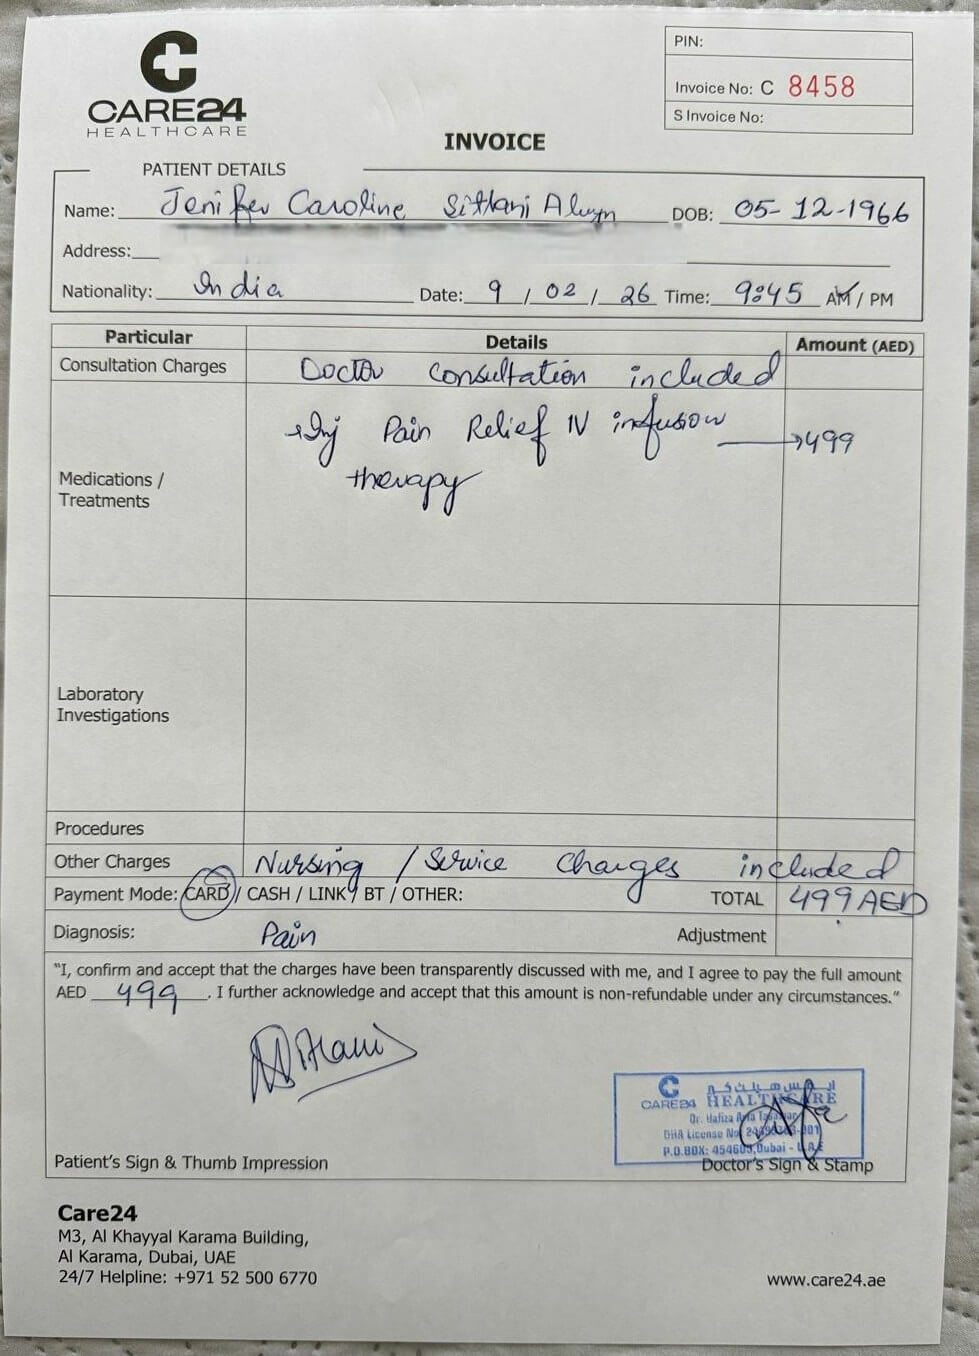 CARE24
HEALTHCARE
PIN:
Invoice No: C 8458
S Invoice No:
INVOICE
PATIENT DETAILS
Name: Jenifer Caroline Sitlani Alwyn DOB: 05-12-1966
Address:
Nationality: India Date: 9 / 02 / 26 Time: 9:45 AM / PM
Particular Details Amount (AED)
Consultation Charges Doctor consultation included
Inj Pain Relief IV infusion → 499
therapy
Medications /
Treatments
Laboratory
Investigations
Procedures
Other Charges Nursing / Service charges included
Payment Mode: CARD / CASH / LINK / BT / OTHER: TOTAL 499 AED
Diagnosis: Pain Adjustment
"I, confirm and accept that the charges have been transparently discussed with me, and I agree to pay the full amount
AED 499. I further acknowledge and accept that this amount is non-refundable under any circumstances."
CARE24 HEALTHCARE
Dr. Hafiza
DHA License No
P.O.BOX: 454605, Dubai - U.A.E
Patient's Sign & Thumb Impression
Doctor's Sign & Stamp
Care24
M3, Al Khayyal Karama Building,
Al Karama, Dubai, UAE
24/7 Helpline: +971 52 500 6770
www.care24.ae